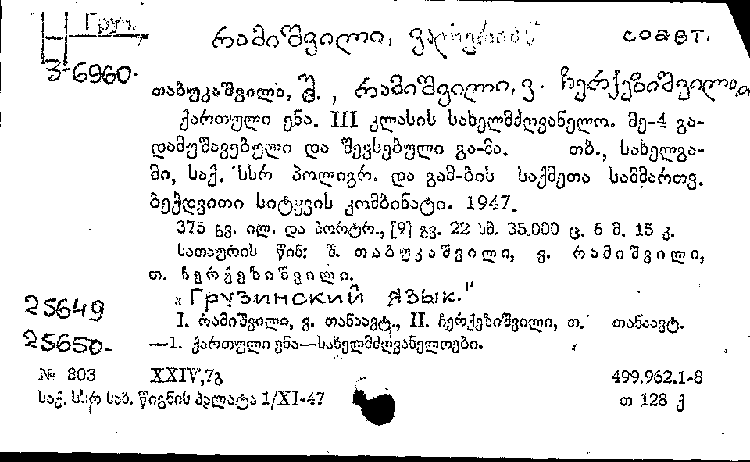 Груз.
რამიშვილი, ვალერიან совет.
3-6960.
თაბუკაშვილი, შ., რამიშვილი, ვ. ჩერქეზიშვილი,
ქართული ენა. III კლასის სახელმძღვანელო. მე-4 გა-
დამუშავებული და შევსებული გა-მა. თბ., სახელგა-
მი, საქ. სსრ პოლიგრ. და გამ-ბის საქმეთა სამმართვ.
ბეჭდვითი სიტყვის კომბინატი. 1947.
375 გვ. ილ. და პორტრ., [9] გვ. 22 სმ. 35.000 ც. 6 მ. 15 კ.
სათაურის წინ: შ. თაბუკაშვილი, ვ. რამიშვილი,
თ. ჩერქეზიშვილი.
„Грузинский язык."
25649 I. რამიშვილი, ვ. თანაავტ., II. ჩერქეზიშვილი, თ. თანაავტ.
25650. —1. ქართული ენა—სახელმძღვანელოები.
№ 803 XXIV,7გ 499.962.1-8
საქ. სსრ სახ. წიგნის პალატა 1/XI-47 თ 128 ქ